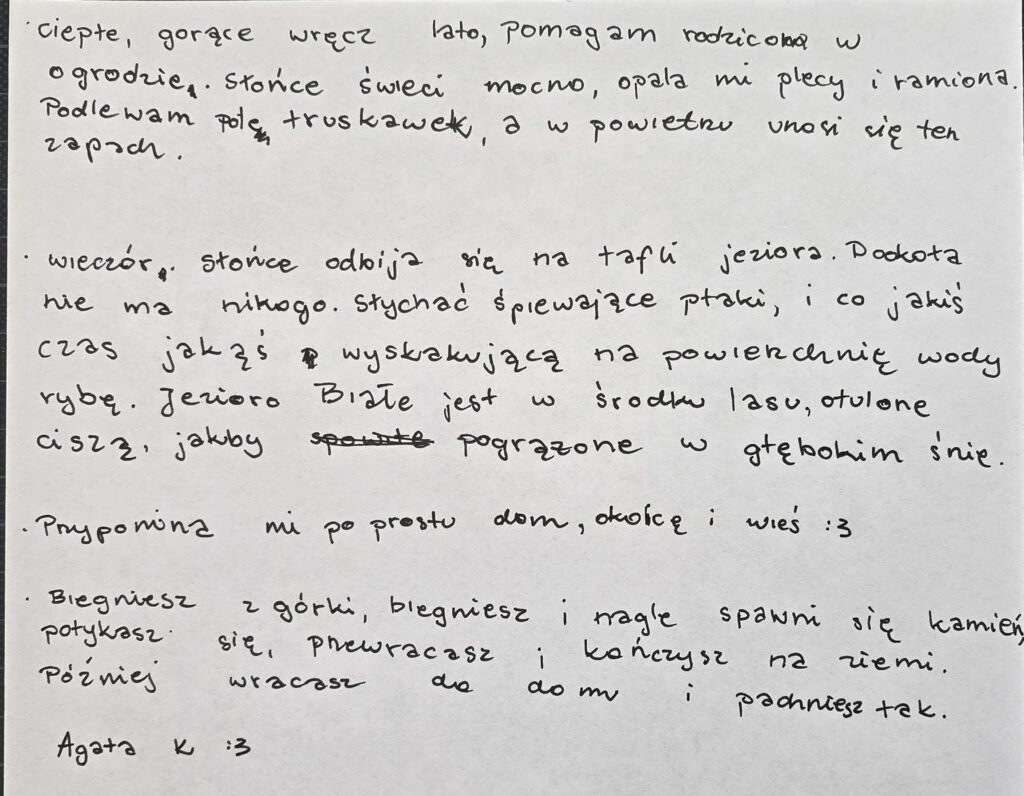 · ciepłe, gorące wręcz lato, pomagam rodzicom w
ogrodzie. Słońce świeci mocno, opala mi plecy i ramiona.
Podlewam polę truskawek, a w powietrzu unosi się ten
zapach.
· wieczór. Słońce odbija się na tafli jeziora. Dookoła
nie ma nikogo. Słychać śpiewające ptaki, i co jakiś
czas jakąś wyskakującą na powierzchnię wody
rybę. Jezioro Białe jest w środku lasu, otulone
ciszą, jakby pogrążone w głębokim śnie.
· Przypomina mi po prostu dom, okolicę i wieś :3
· Biegniesz z górki, biegniesz i nagle spawni się kamień,
potykasz się, przewracasz i kończysz na ziemi.
Później wracasz do domu i pachniesz tak.
Agata K :3